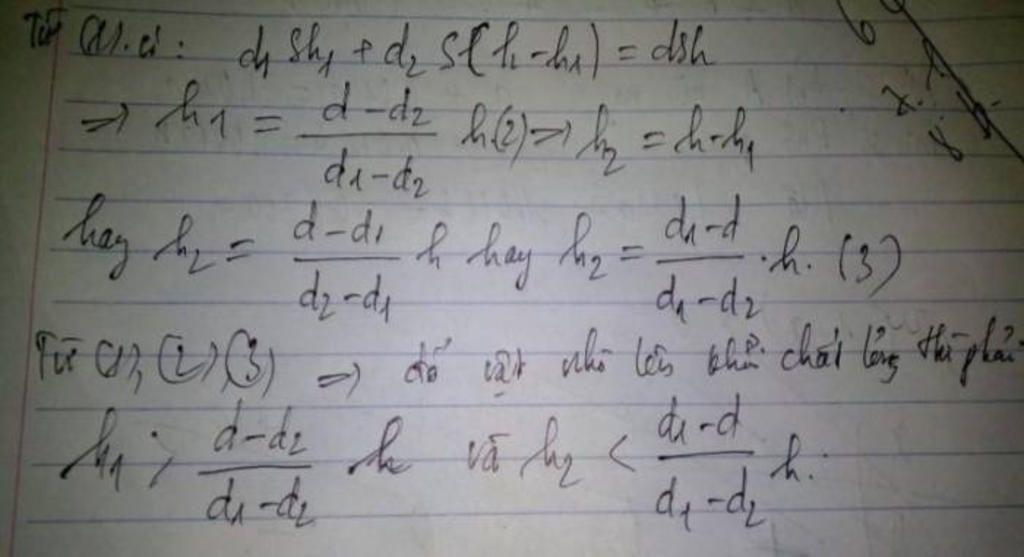 Từ (1) có: d₁Sh₁ + d₂S(h-h₁) = dSh
=> h₁ = \frac{d-d₂}{d₁-d₂} h(2) => h₂ = h-h₁
hay h₂ = \frac{d-d₁}{d₂-d₁} h hay h₂ = \frac{d₁-d}{d₁-d₂} . h. (3)
Từ (1), (2), (3) => để vật nhô lên khỏi chất lỏng thì phải
h₁ > \frac{d-d₂}{d₁-d₂} h và h₂ < \frac{d₁-d}{d₁-d₂} h.